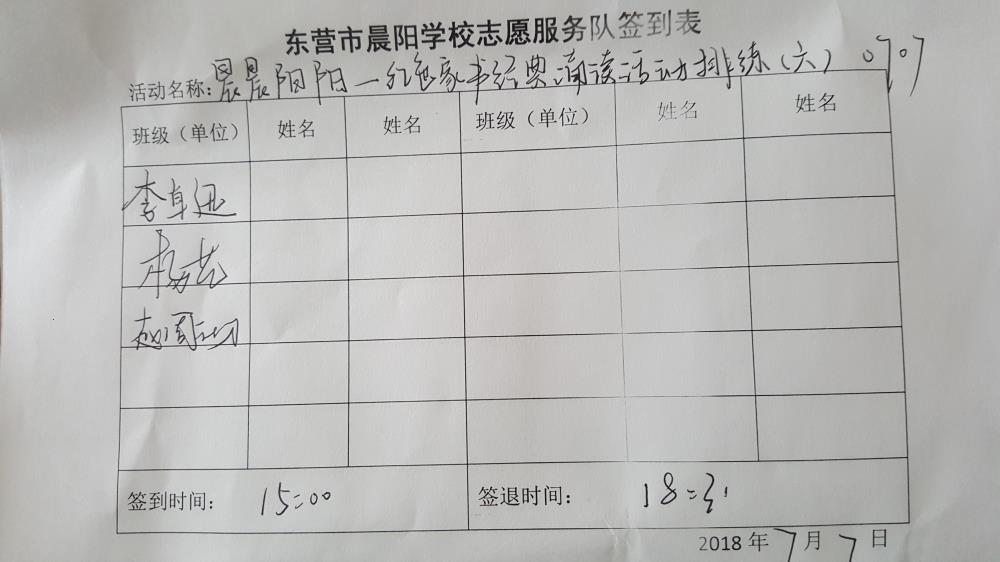 东营市晨阳学校志愿服务队签到表
活动名称:晨晨阳阳一红色家书经典诵读活动排练(六) 0707
班级(单位) 姓名 姓名 班级(单位) 姓名 姓名
李卓迅
杨芸
签到时间: 15:00 签退时间: 18:3
2018年7月7日